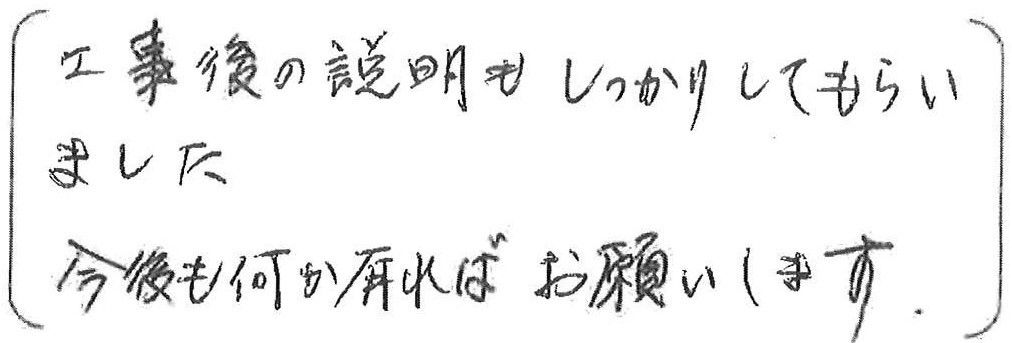 工事後の説明もしっかりしてもらい
ました
今後も何か有ればお願いします.